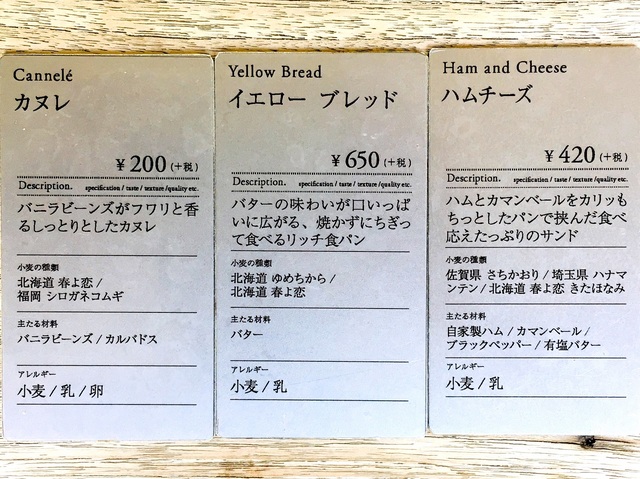 Cannelé
カヌレ
¥ 200 (+税)
Description. specification / taste / texture /quality etc.
バニラビーンズがフワリと香
るしっとりとしたカヌレ
小麦の種類
北海道 春よ恋 /
福岡 シロガネコムギ
主たる材料
バニラビーンズ / カルバドス
アレルギー
小麦 / 乳 / 卵
Yellow Bread
イエロー ブレッド
¥ 650 (+税)
Description. specification / taste / texture /quality etc.
バターの味わいが口いっぱ
いに広がる、焼かずにちぎっ
て食べるリッチ食パン
小麦の種類
北海道 ゆめちから /
北海道 春よ恋
主たる材料
バター
アレルギー
小麦 / 乳
Ham and Cheese
ハムチーズ
¥ 420 (+税)
Description. specification / taste / texture /quality etc.
ハムとカマンベールをカリッも
ちっとしたパンで挟んだ食べ
応えたっぷりのサンド
小麦の種類
佐賀県 さちかおり / 埼玉県 ハナマ
ンテン / 北海道 春よ恋 きたほなみ
主たる材料
自家製ハム / カマンベール /
ブラックペッパー / 有塩バター
アレルギー
小麦 / 乳